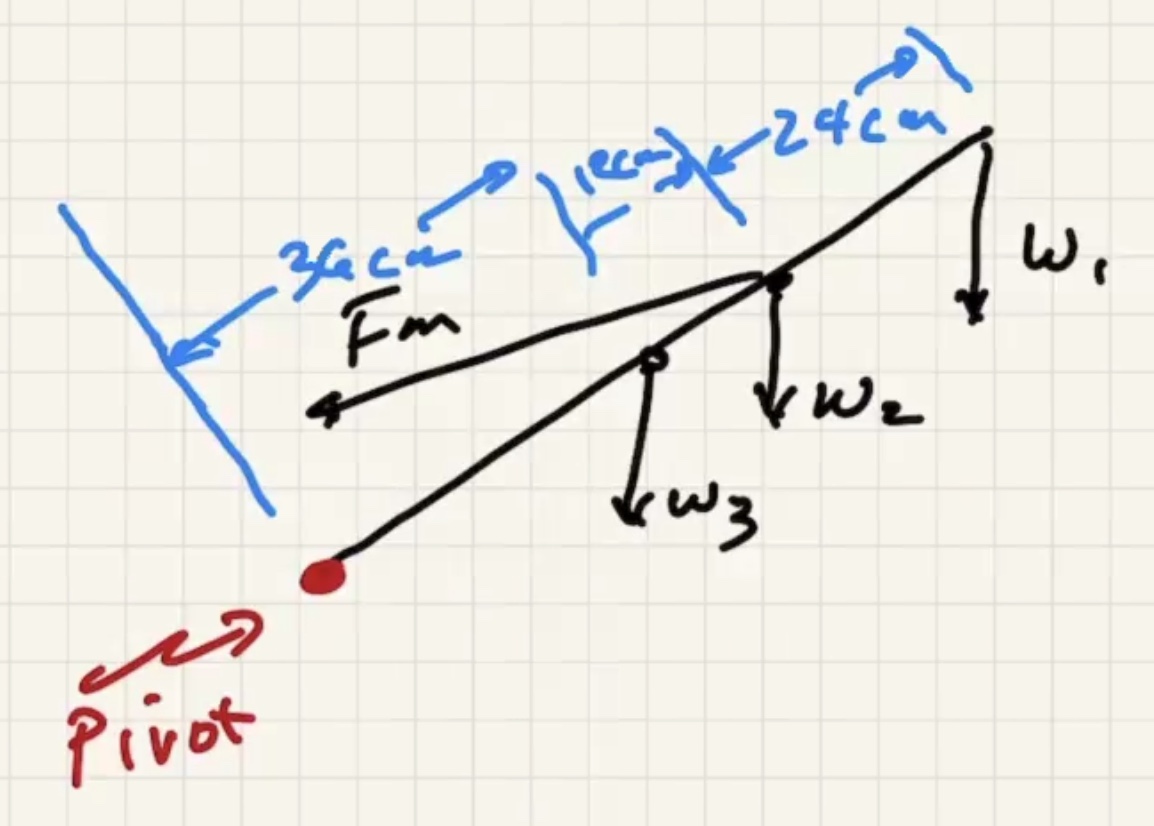 24cm
12cm
36cm
Fm
W1
W2
W3
Pivot